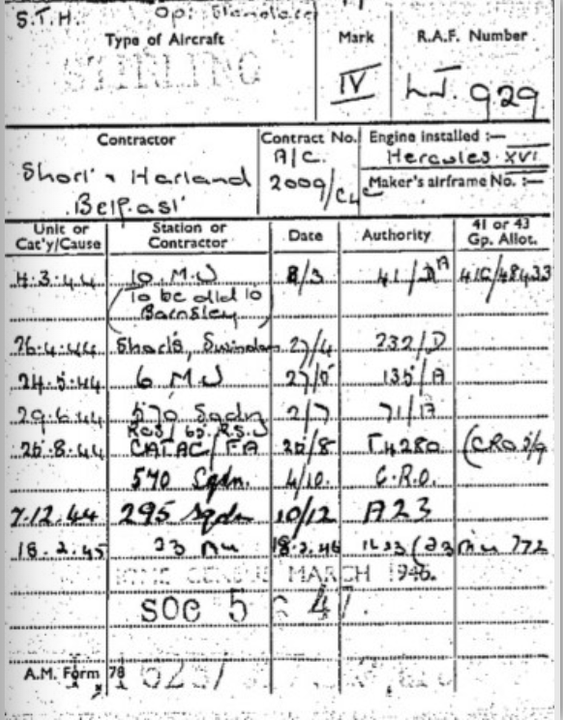 S.T.H.
Type of Aircraft Mark R.A.F. Number
STIRLING IV LJ.929
Contractor Contract No. Engine installed :—
Short & Harland A/C. Hercules XVI
Belfast 2009/ Maker's airframe No. :—
Unit or Cat'y/Cause Station or Contractor Date Authority 41 or 43 Gp. Allot.
4.3.44 10 M.U 8/3 41/DA 41G/48433
(to be alld to
Barnsley)
26.4.44 Shorts, Swindon 27/4 232/D
24.5.44 6 M.U 27/5 135/A
29.6.44 570 Sqdn 2/7
R.S.U
26.8.44 CATAC/FA 26/8 (CRO
570 Sqdn. 4/10. C.R.O.
7.12.44 295 Sqdn 10/12 A23
18.2.46 23 MU 18.2.46 (23 MU 772
CENSUS MARCH 1946.
SOC 5 47.
A.M. Form 78